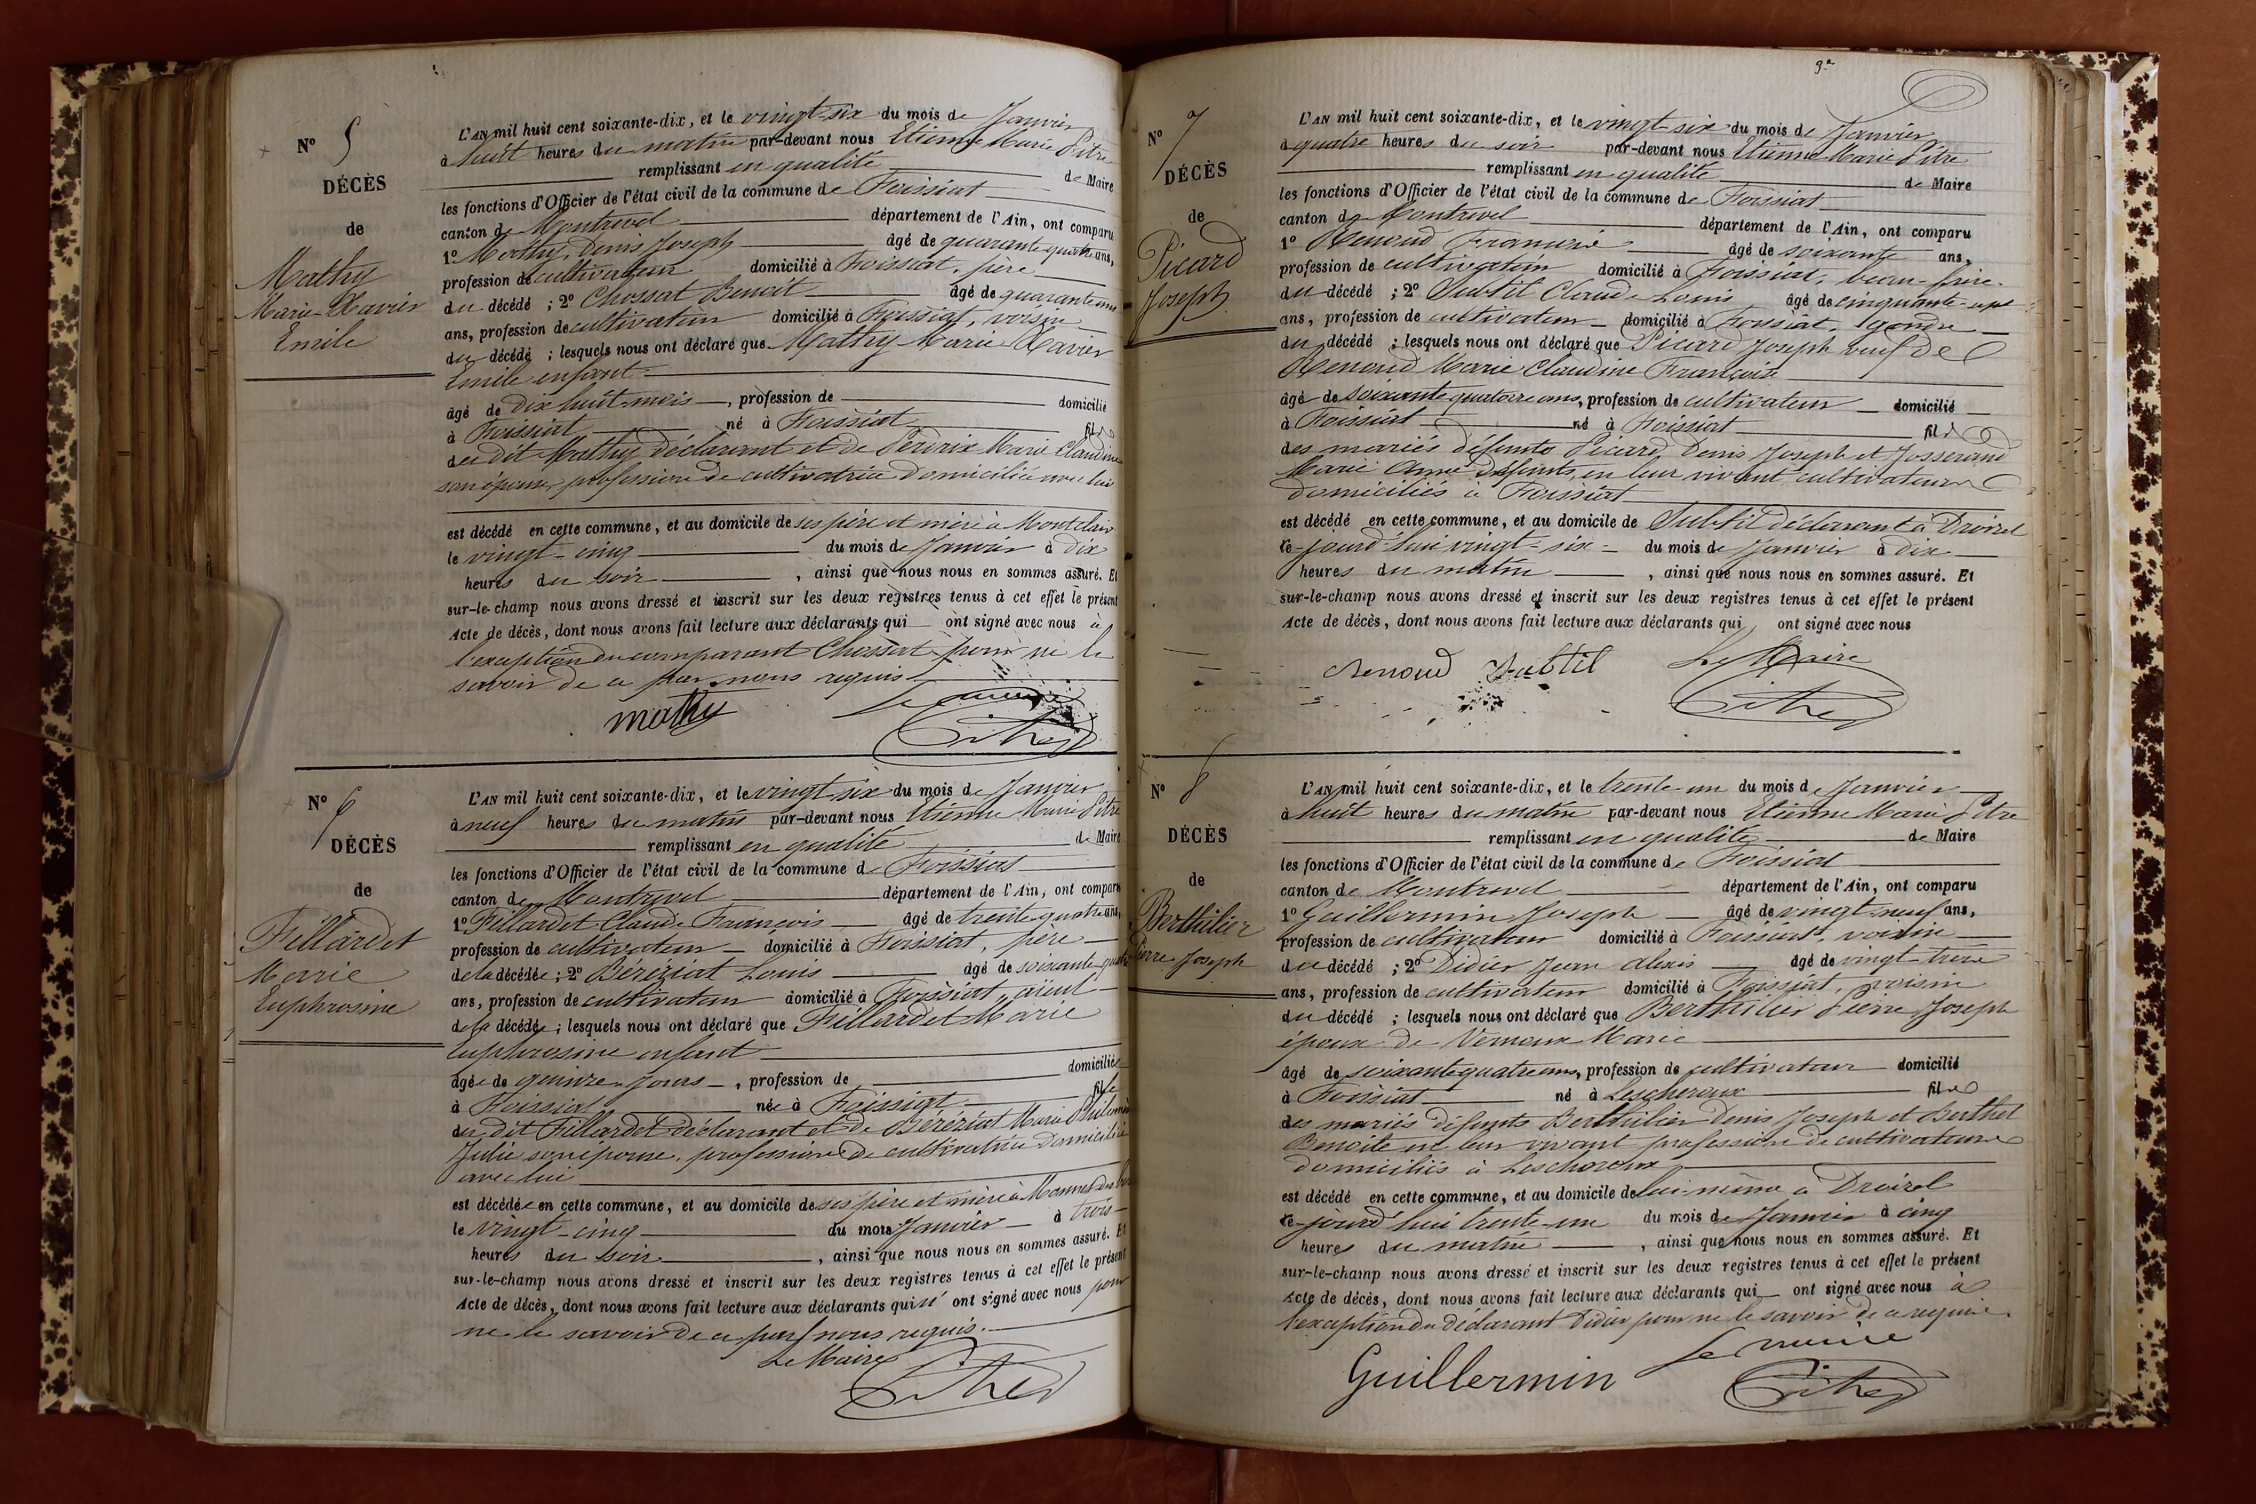 Nº 5
DÉCÈS
de
Mathy
Marie-Xavier
Emile
L'AN mil huit cent soixante-dix, et le vingt-six du mois de Janvier
à huit heures du matin par-devant nous Etienne Marie Pitre
remplissant en qualité de Maire
les fonctions d'Officier de l'état civil de la commune de Foissiat
canton de Montrevel département de l'Ain, ont comparu
1º Mathy Denis Joseph âgé de quarante quatre ans,
profession de cultivateur domicilié à Foissiat, père
du décédé ; 2º Chossat Benoit âgé de quarante
ans, profession de cultivateur domicilié à Foissiat, voisin
du décédé ; lesquels nous ont déclaré que Mathy Marie Xavier
Emile enfant
âgé de dix huit mois, profession de domicilié
à Foissiat né à Foissiat fils
du dit Mathy déclarant et de Perdrix Marie Claudine
son épouse, profession de cultivatrice domiciliée avec lui
est décédé en cette commune, et au domicile de ses père et mère à Montclair
le vingt-cinq du mois de Janvier à dix
heures du soir, ainsi que nous nous en sommes assuré. Et
sur-le-champ nous avons dressé et inscrit sur les deux registres tenus à cet effet le présent
Acte de décès, dont nous avons fait lecture aux déclarants qui ont signé avec nous à
l'exception du comparant Chossat pour ne le
savoir de ce par nous requis
Mathy Le Maire
Pitre
Nº 6
DÉCÈS
de
Fillardet
Marie
Euphrosine
L'AN mil huit cent soixante-dix, et le vingt-six du mois de Janvier
à neuf heures du matin par-devant nous Etienne Marie Pitre
remplissant en qualité de Maire
les fonctions d'Officier de l'état civil de la commune de Foissiat
canton de Montrevel département de l'Ain, ont comparu
1º Fillardet Claude François âgé de trente quatre ans,
profession de cultivateur domicilié à Foissiat, père
de la décédée ; 2º Béréziat Louis âgé de soixante quatre
ans, profession de cultivateur domicilié à Foissiat, aïeul
de la décédée ; lesquels nous ont déclaré que Fillardet Marie
Euphrosine enfant
âgée de quinze jours, profession de domiciliée
à Foissiat née à Foissiat fille
du dit Fillardet déclarant et de Béréziat Marie Philomène
Julie son épouse, profession de cultivatrice domiciliée
avec lui
est décédée en cette commune, et au domicile de ses père et mère à
le vingt-cinq du mois Janvier à trois
heures du soir, ainsi que nous nous en sommes assuré. Et
sur-le-champ nous avons dressé et inscrit sur les deux registres tenus à cet effet le présent
Acte de décès, dont nous avons fait lecture aux déclarants qui n' ont signé avec nous pour
ne le savoir de ce par nous requis.
Le Maire
Pitre
9
Nº 7
DÉCÈS
de
Picard
Joseph
L'AN mil huit cent soixante-dix, et le vingt-six du mois de Janvier
à quatre heures du soir par-devant nous Etienne Marie Pitre
remplissant en qualité de Maire
les fonctions d'Officier de l'état civil de la commune de Foissiat
canton de Montrevel département de l'Ain, ont comparu
1º Renoud âgé de soixante ans,
profession de cultivateur domicilié à Foissiat, beau-frère
du décédé ; 2º Subtil Claude Louis âgé de cinquante-sept
ans, profession de cultivateur domicilié à Foissiat, gendre
du décédé ; lesquels nous ont déclaré que Picard Joseph veuf de
Renoud Marie Claudine Françoise
âgé de soixante quatorze ans, profession de cultivateur domicilié
à Foissiat né à Foissiat fils
des mariés défunts Picard Denis Joseph et Josserand
Marie Anne défunts, en leur vivant cultivateurs
domiciliés à Foissiat
est décédé en cette commune, et au domicile de Subtil déclarant à Droizel
ce-jourd'hui vingt-six du mois de Janvier à dix
heures du matin, ainsi que nous nous en sommes assuré. Et
sur-le-champ nous avons dressé et inscrit sur les deux registres tenus à cet effet le présent
Acte de décès, dont nous avons fait lecture aux déclarants qui ont signé avec nous
Renoud Subtil Le Maire
Pitre
Nº 8
DÉCÈS
de
Berthilier
Pierre Joseph
L'AN mil huit cent soixante-dix, et le trente-un du mois de Janvier
à huit heures du matin par-devant nous Etienne Marie Pitre
remplissant en qualité de Maire
les fonctions d'Officier de l'état civil de la commune de Foissiat
canton de Montrevel département de l'Ain, ont comparu
1º Guillermin Joseph âgé de vingt-neuf ans,
profession de cultivateur domicilié à Foissiat, voisin
du décédé ; 2º Didier Jean Alexis âgé de vingt-treize
ans, profession de cultivateur domicilié à Foissiat, voisin
du décédé ; lesquels nous ont déclaré que Berthilier Pierre Joseph
époux de Verneux Marie
âgé de soixante quatre ans, profession de cultivateur domicilié
à Foissiat né à Lescheroux fils
des mariés défunts Berthilier Denis Joseph et Berthet
Benoite en leur vivant profession de cultivateurs
domiciliés à Lescheroux
est décédé en cette commune, et au domicile de lui-même à Droizel
ce-jourd'hui trente-un du mois de Janvier à cinq
heures du matin, ainsi que nous nous en sommes assuré. Et
sur-le-champ nous avons dressé et inscrit sur les deux registres tenus à cet effet le présent
Acte de décès, dont nous avons fait lecture aux déclarants qui ont signé avec nous à
l'exception du déclarant Didier pour ne le savoir de ce requis.
Guillermin Le Maire
Pitre